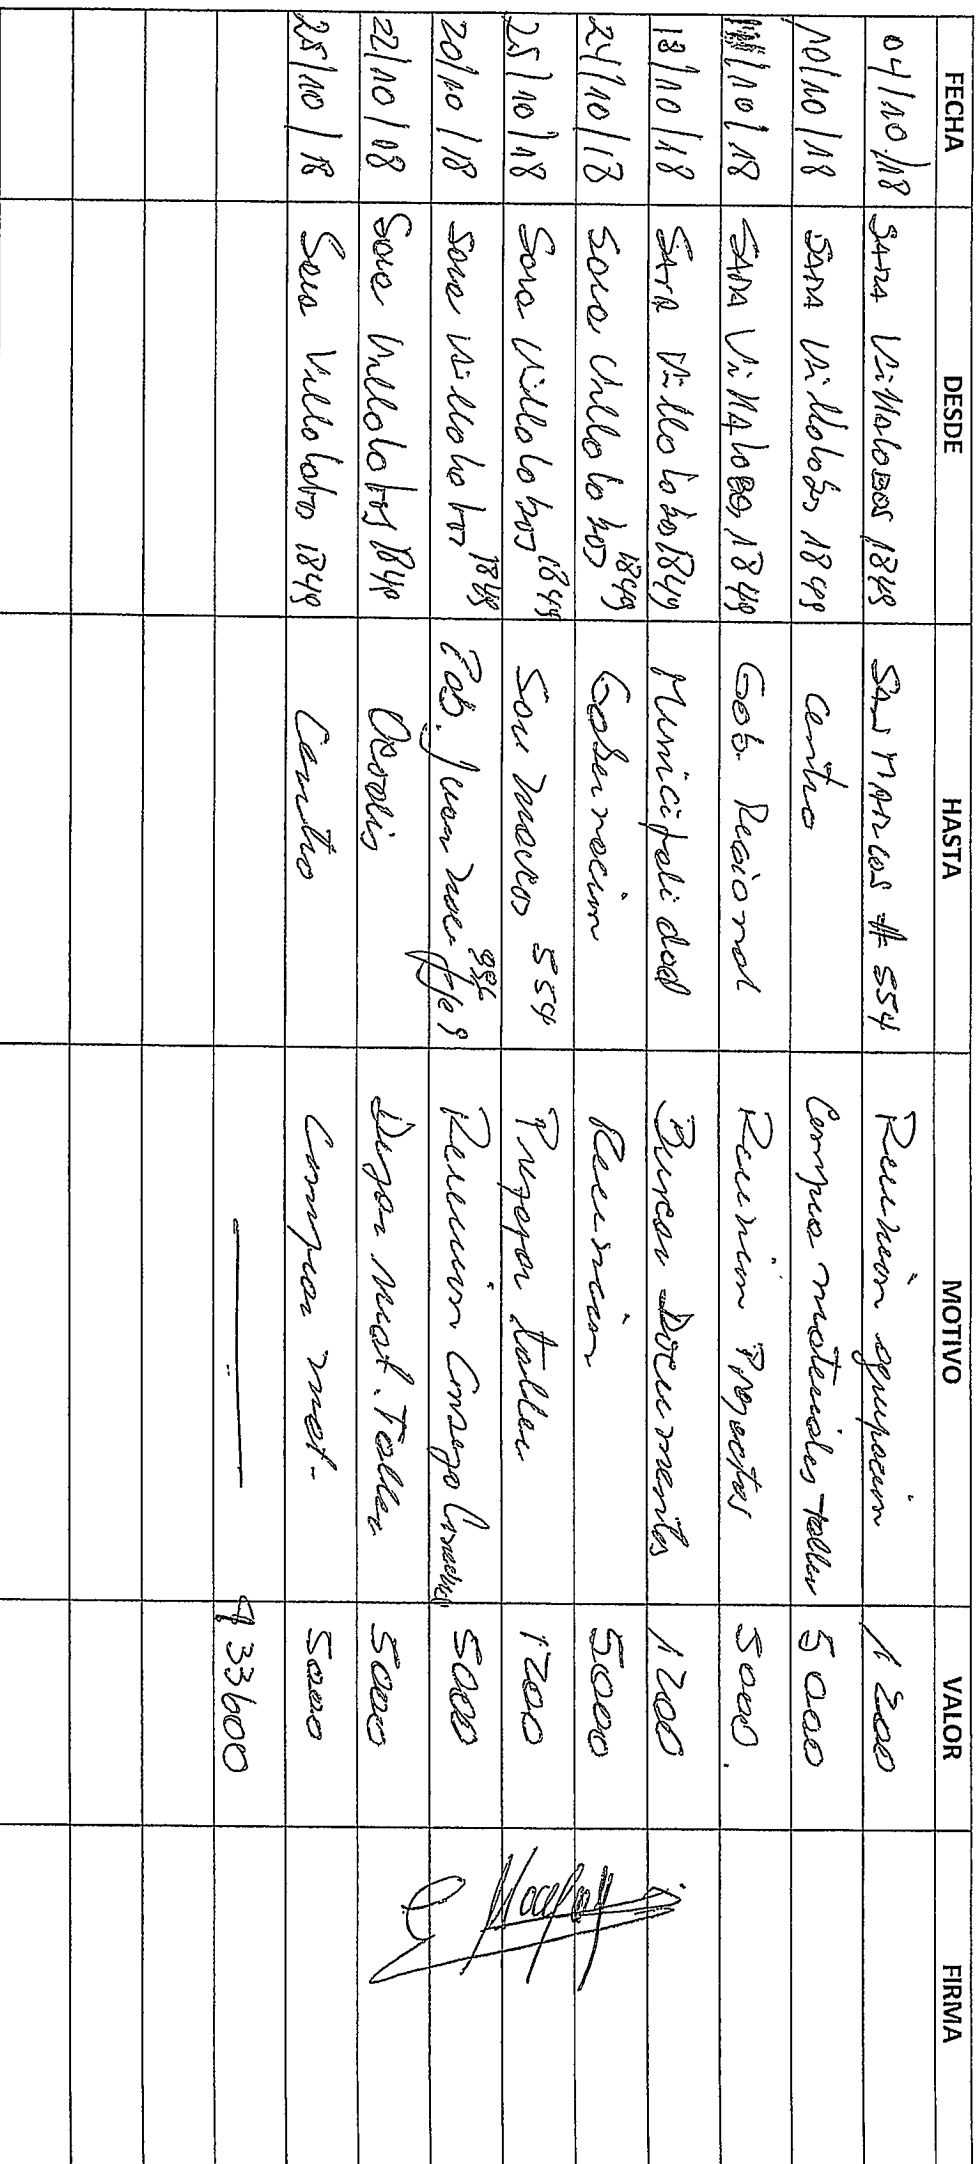 FECHA DESDE HASTA MOTIVO VALOR FIRMA
04/10/18 SARA VillaloBos 1849 SAN MARCOS # 554 Reunión agrupación 1200
10/10/18 SARA Villalobos 1849 Centro Compra materiales taller 5000
/10/18 SARA VillALOBOS 1849 Gob. Regional Reunion Proyectos 5000.
18/10/18 SARA Villalobos 1849 Municipalidad Buscar Documentos 1200
24/10/18 Sara Villalobos 1849 Gobernacion Reunion 5000
25/10/18 Sara Villalobos 1849 San Marcos 554 Preparar taller 1200
20/10/18 Sara Villalobos 1849 Pob. Juan Noe Reunion Consejo 5000
22/10/08 Sara Villalobos 1849 Dejar mat. Taller 5000
25/10/18 Sara Villalobos 1849 Centro Comprar mat. 5000
33600